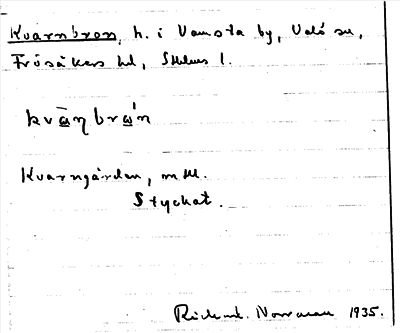 Kvarnbron, h. i Vamsta by, Valö sn,
Frösåkers hd, Sthlms l.
kvàṇbrω´n
Kvarngården, m.fl.
Styckat.
Rickard. Norrman 1935.